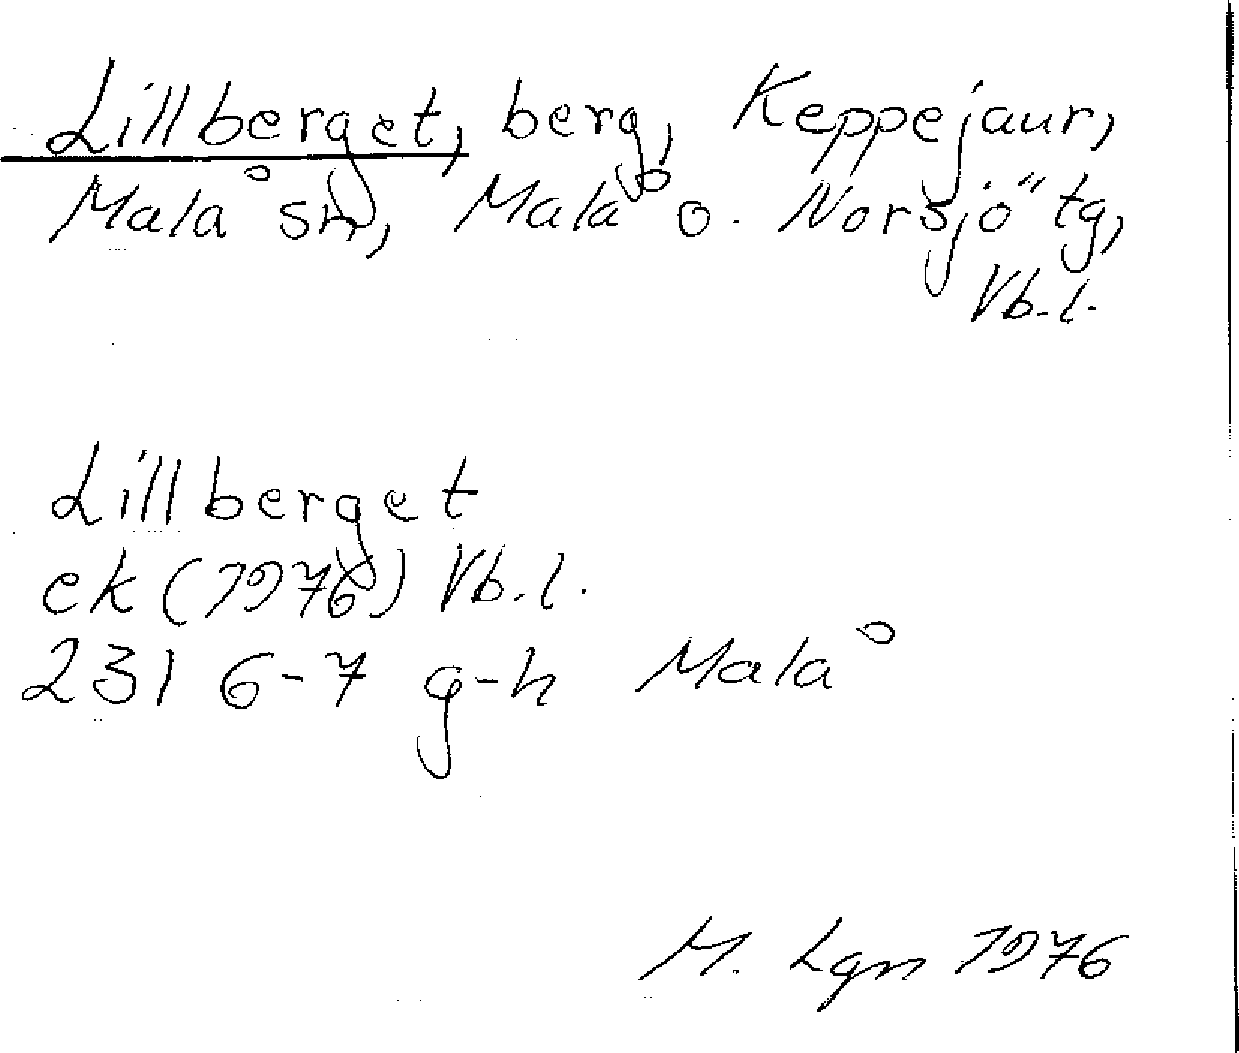 Lillberget, berg, Keppejaur,
Malå sn, Malå o. Norsjö tg,
Vb. l.
Lillberget
ek (1976) Vb. l.
231 6-7 g-h Malå
M. Lgn 1976